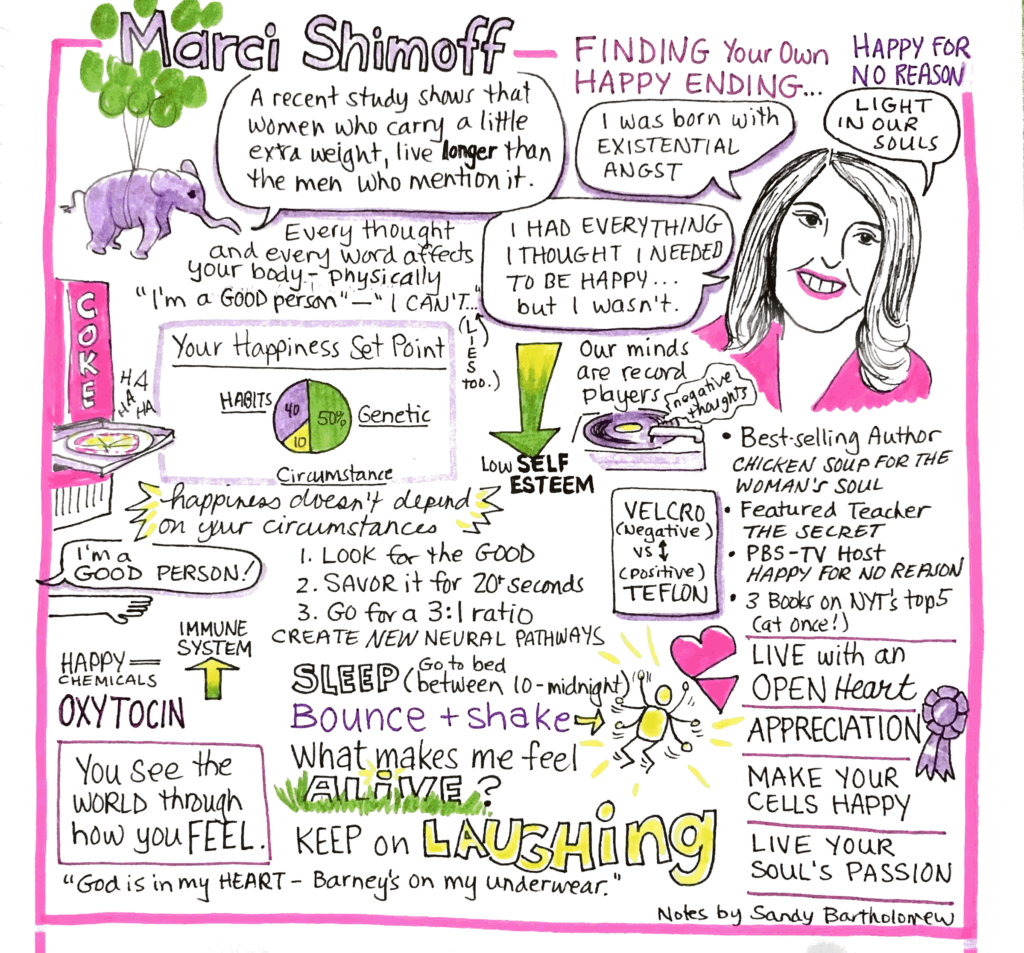 Marci Shimoff
FINDING Your Own
HAPPY ENDING...
HAPPY FOR
NO REASON
A recent study shows that
women who carry a little
extra weight, live longer than
the men who mention it.
I was born with
EXISTENTIAL
ANGST
LIGHT
IN OUR
SOULS
Every thought
and every word affects
your body - physically
"I'm a GOOD person" — "I CAN'T..."
(LIES
TOO.)
I HAD EVERYTHING
I THOUGHT I NEEDED
TO BE HAPPY...
but I wasn't.
COKE
HA
HA
HA
Your Happiness Set Point
HABITS
40
50%
Genetic
10
Circumstance
Low SELF
ESTEEM
Our minds
are record
players
negative
thoughts
happiness doesn't depend
on your circumstances
• Best-selling Author
CHICKEN SOUP FOR THE
WOMAN'S SOUL
• Featured Teacher
THE SECRET
• PBS-TV Host
HAPPY FOR NO REASON
• 3 Books on NYT's top 5
(at once!)
VELCRO
(Negative)
VS
(positive)
TEFLON
I'm a
GOOD PERSON!
1. LOOK for the GOOD
2. SAVOR it for 20+ seconds
3. GO for a 3:1 ratio
CREATE NEW NEURAL PATHWAYS
IMMUNE
SYSTEM
HAPPY
CHEMICALS
OXYTOCIN
SLEEP (Go to bed
between 10-midnight)
Bounce + shake
What makes me feel
ALIVE?
KEEP on LAUGHING
You see the
WORLD through
how you FEEL.
LIVE with an
OPEN Heart
APPRECIATION
MAKE YOUR
CELLS HAPPY
LIVE YOUR
SOUL'S PASSION
"God is in my HEART - Barney's on my underwear."
Notes by Sandy Bartholomew